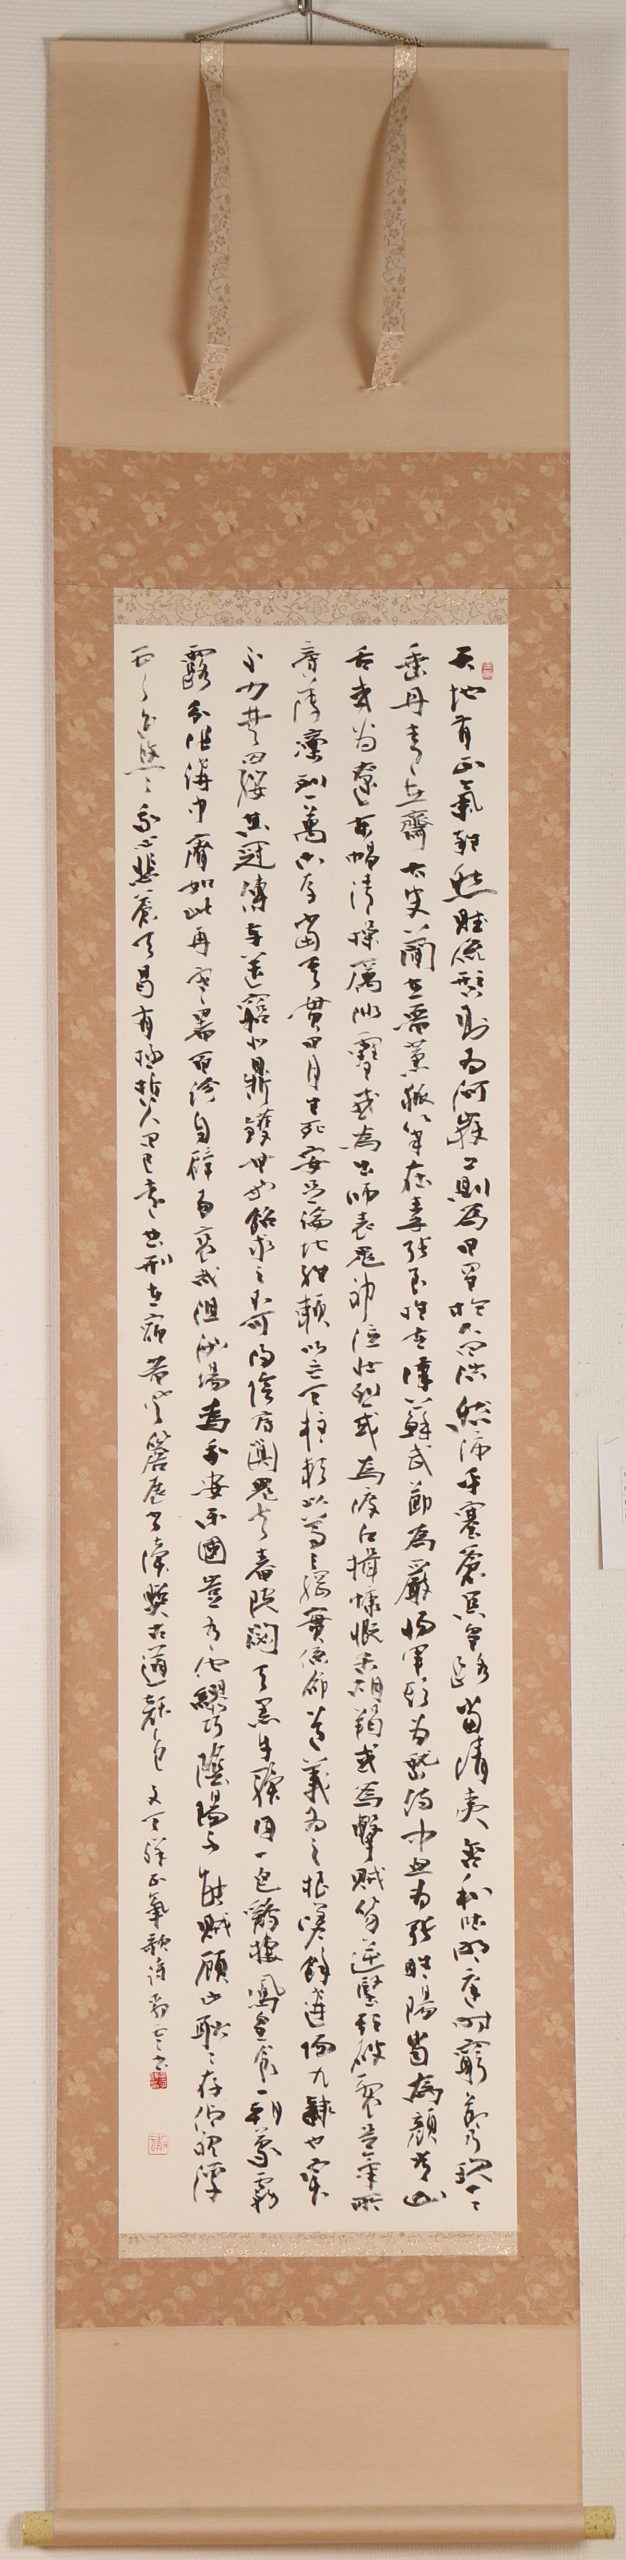 天地有正氣雜然賦流形下則為河嶽上則為日星於人曰浩然沛乎塞蒼冥皇路當清夷含和吐明庭時窮節乃現一一
垂丹青在齊太史簡在晉董狐筆在秦張良椎在漢蘇武節為嚴將軍頭為嵇侍中血為張睢陽齒為顏常山
舌或為遼東帽清操厲冰雪或為出師表鬼神泣壯烈或為渡江楫慷慨吞胡羯或為擊賊笏逆豎頭破裂是氣所
旁薄凜烈萬古存當其貫日月生死安足論地維賴以立天柱賴以尊三綱實係命道義為之根嗟余遘陽九隸也實
不力楚囚纓其冠傳車送窮北鼎鑊甘如飴求之不可得陰房闃鬼火春院閟天黑牛驥同一皂雞棲鳳凰食一朝蒙霧
露分作溝中瘠如此再寒暑百沴自辟易哀哉沮洳場為我安樂國豈有他繆巧陰陽不能賊顧此耿々存仰視浮
雲白悠々我心悲蒼天曷有極哲人日已遠典刑在宿昔風簷展書讀古道照顏色 文天祥正氣歌詩 書